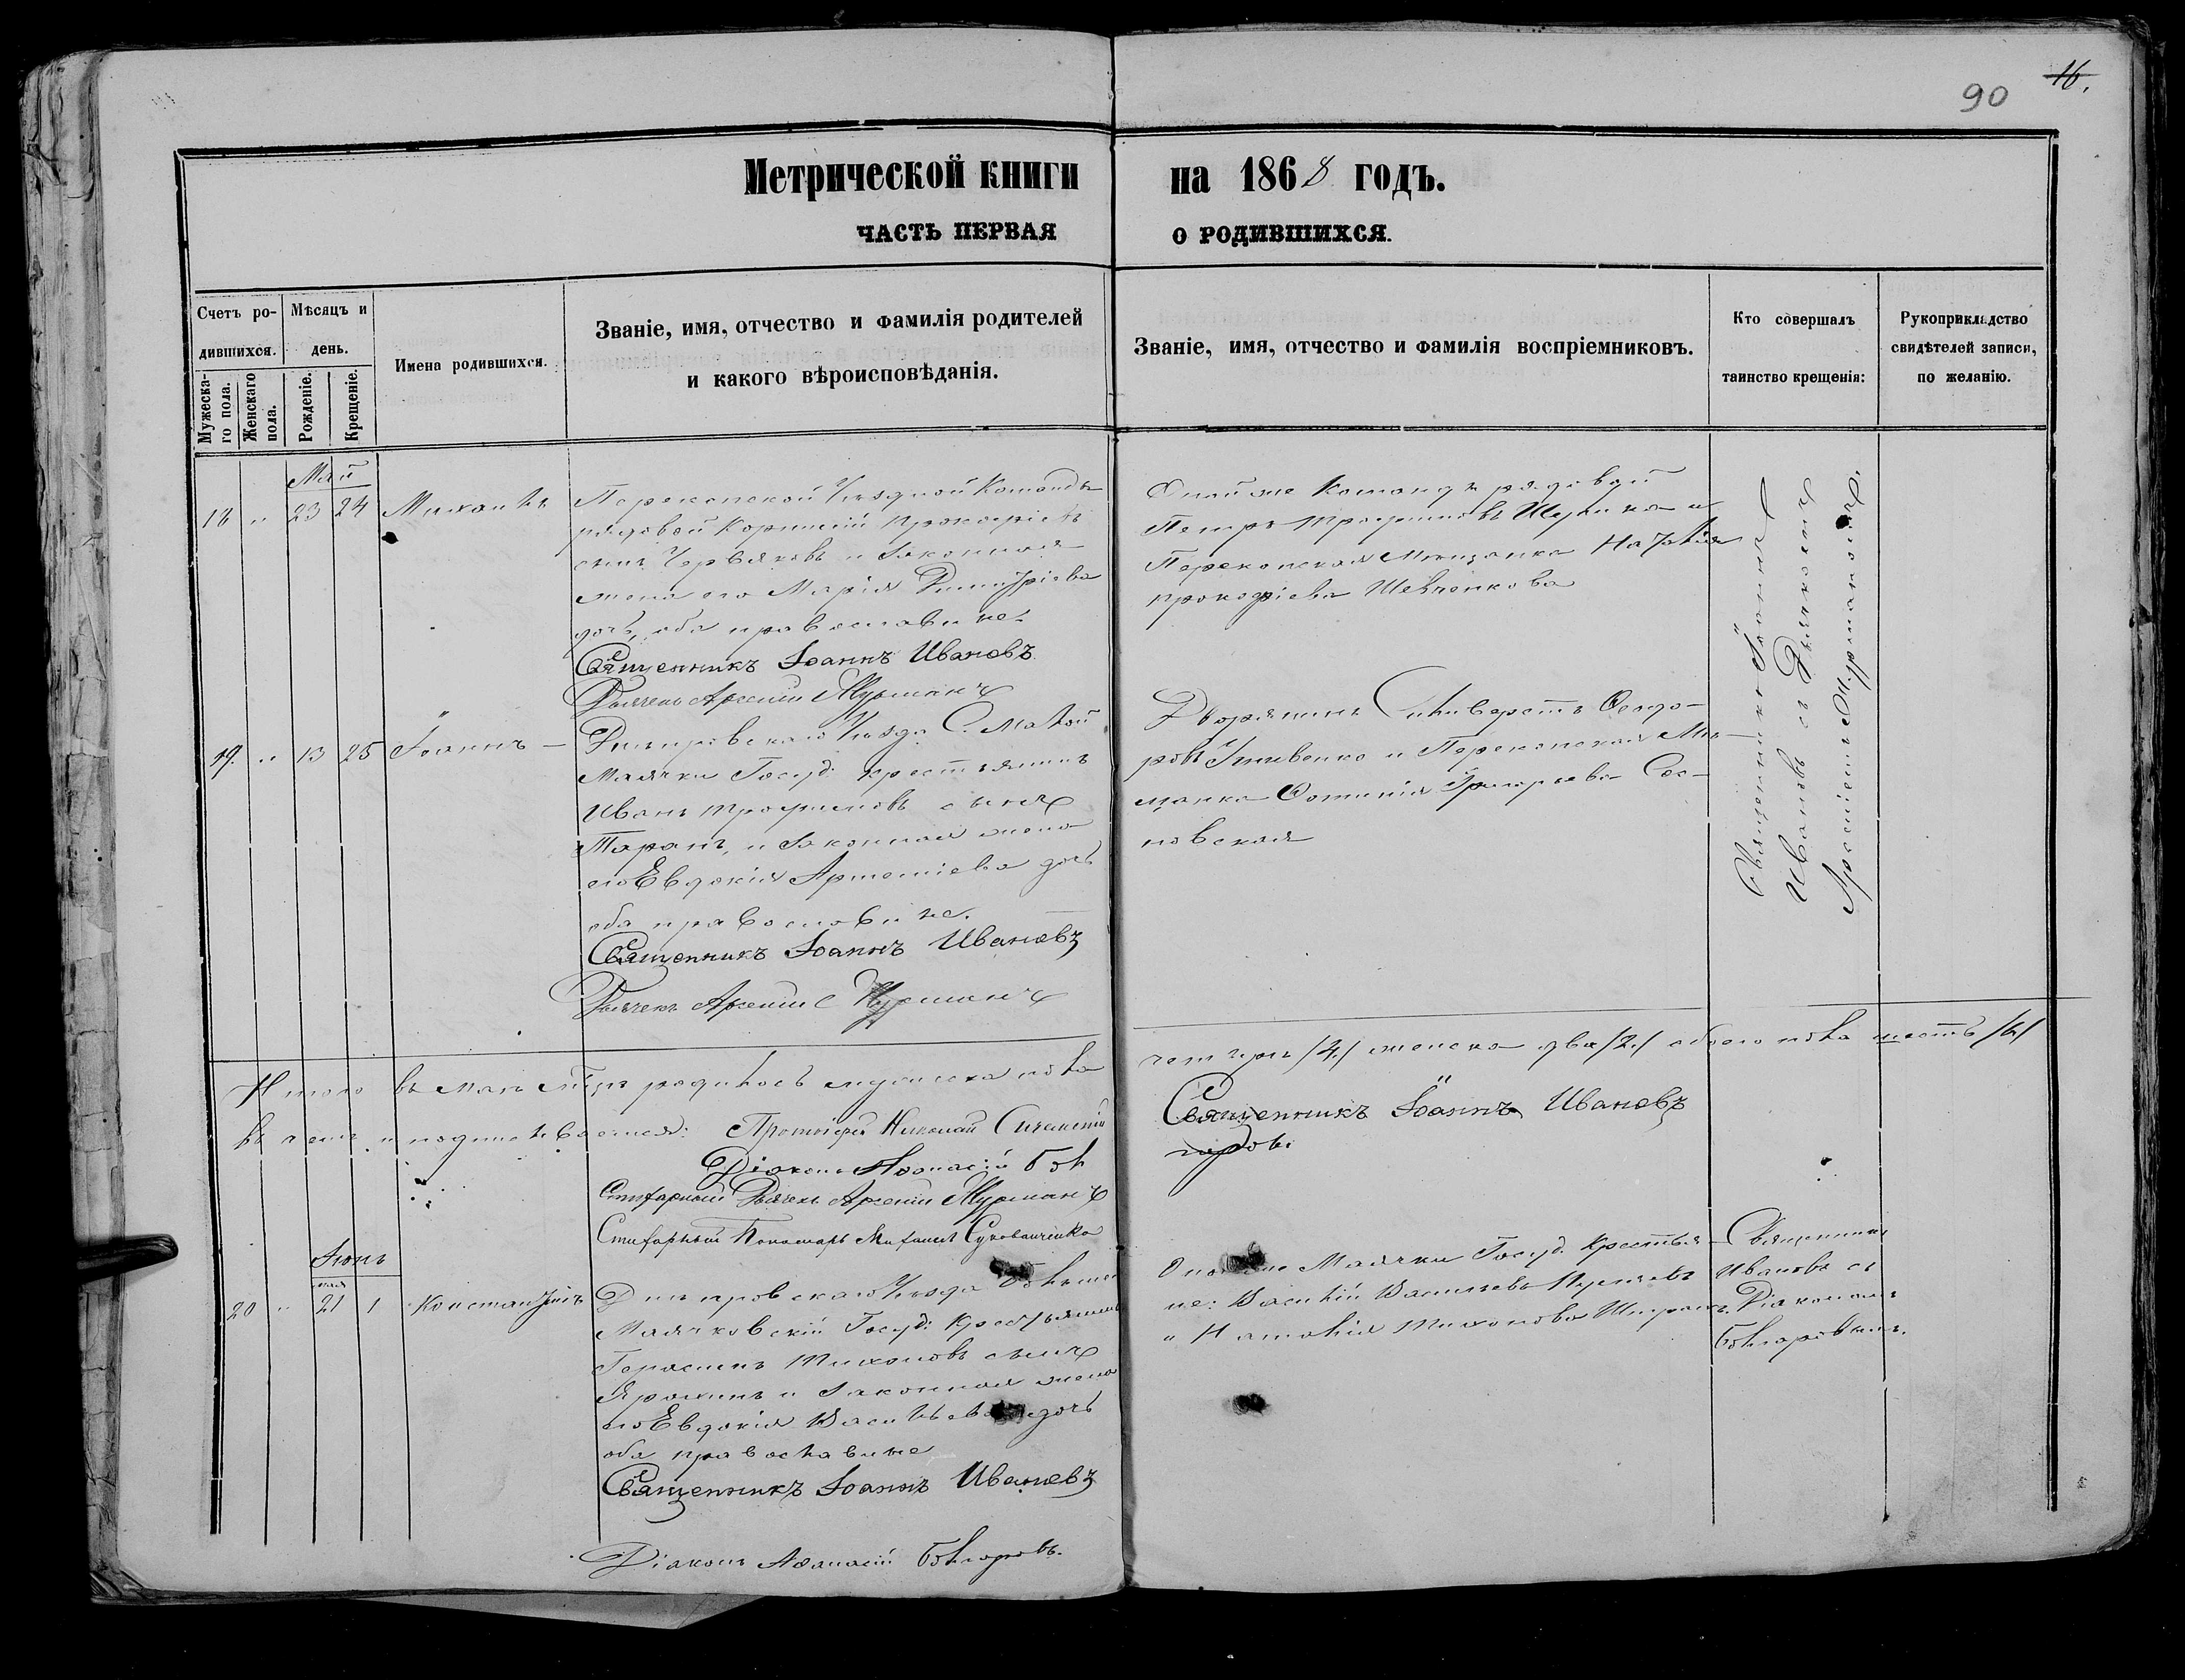 90 16.
Метрической книги на 1868 годъ.
ЧАСТЬ ПЕРВАЯ О РОДИВШИХСЯ.
Счетъ ро-
дившихся.
Мужеска-
го пола.
Женскаго
пола.
Мѣсяцъ и
день.
Рожденіе.
Крещеніе.
Имена родившихся.
Званіе, имя, отчество и фамилія родителей
и какого вѣроисповѣданія.
Званіе, имя, отчество и фамилія воспріемниковъ.
Кто совершалъ
таинство крещенія:
Рукоприкладство
свидѣтелей записи,
по желанію.
Май
18 " 23 24 Михаилъ
Перекопской Уѣздной Команды
рядовой Корнилій Прокофіевъ
сынъ Червяковъ и законная
жена его Марія Димитріева
дочь, оба православные
Священникъ Іоаннъ Ивановъ
Дьячекъ Арсеній
Оной же Команды рядовой
Петръ Трофимовъ и
Перекопская Мѣщанка Наталія
Прокофіева Шевченкова
Священникъ Іоаннъ
Ивановъ съ Дьячкомъ
Арсеніемъ
19. " 13 25 Іоаннъ
Днѣпровскаго Уѣзда С. Малой
Маячки Госуд: крестьянинъ
Иванъ Трофимовъ сынъ
Таранъ, и законная жена
его Евдокія Артеміева дочь
оба православные.
Священникъ Іоаннъ Ивановъ
Дьячекъ Арсеній
Дворянинъ Селиверстъ Феодо-
ровъ и Перекопская Мѣ-
щанка Фотинія Григорьева Сос-
новская
Итого въ маѣ м-цѣ родилось мужеска пола
четыре /4/ женска два /2/ обоего пола шесть /6/
въ чемъ и подписываемся: Протоіерей Николай
Священникъ Іоаннъ Ивановъ
Діаконъ Афанасій Бол
гаровъ
Стихарный Дьячекъ Арсеній
Стихарный Пономарь Михаилъ
Іюнь
мая
20 " 21 1 Константинъ
Днѣпровскаго Уѣзда Больше
Маячковскій Госуд: Крестьянинъ
Герасимъ Тихоновъ сынъ
Ярошинъ и законная жена
его Евдокія Васильева дочь
оба православные
Священникъ Іоаннъ Ивановъ
Діаконъ Афанасій Болгаровъ.
Маячки Госуд: Крестья-
не: Василій Васильевъ
и Наталія Тихонова
Священникъ
Ивановъ съ
Діакономъ
Болгаровымъ.